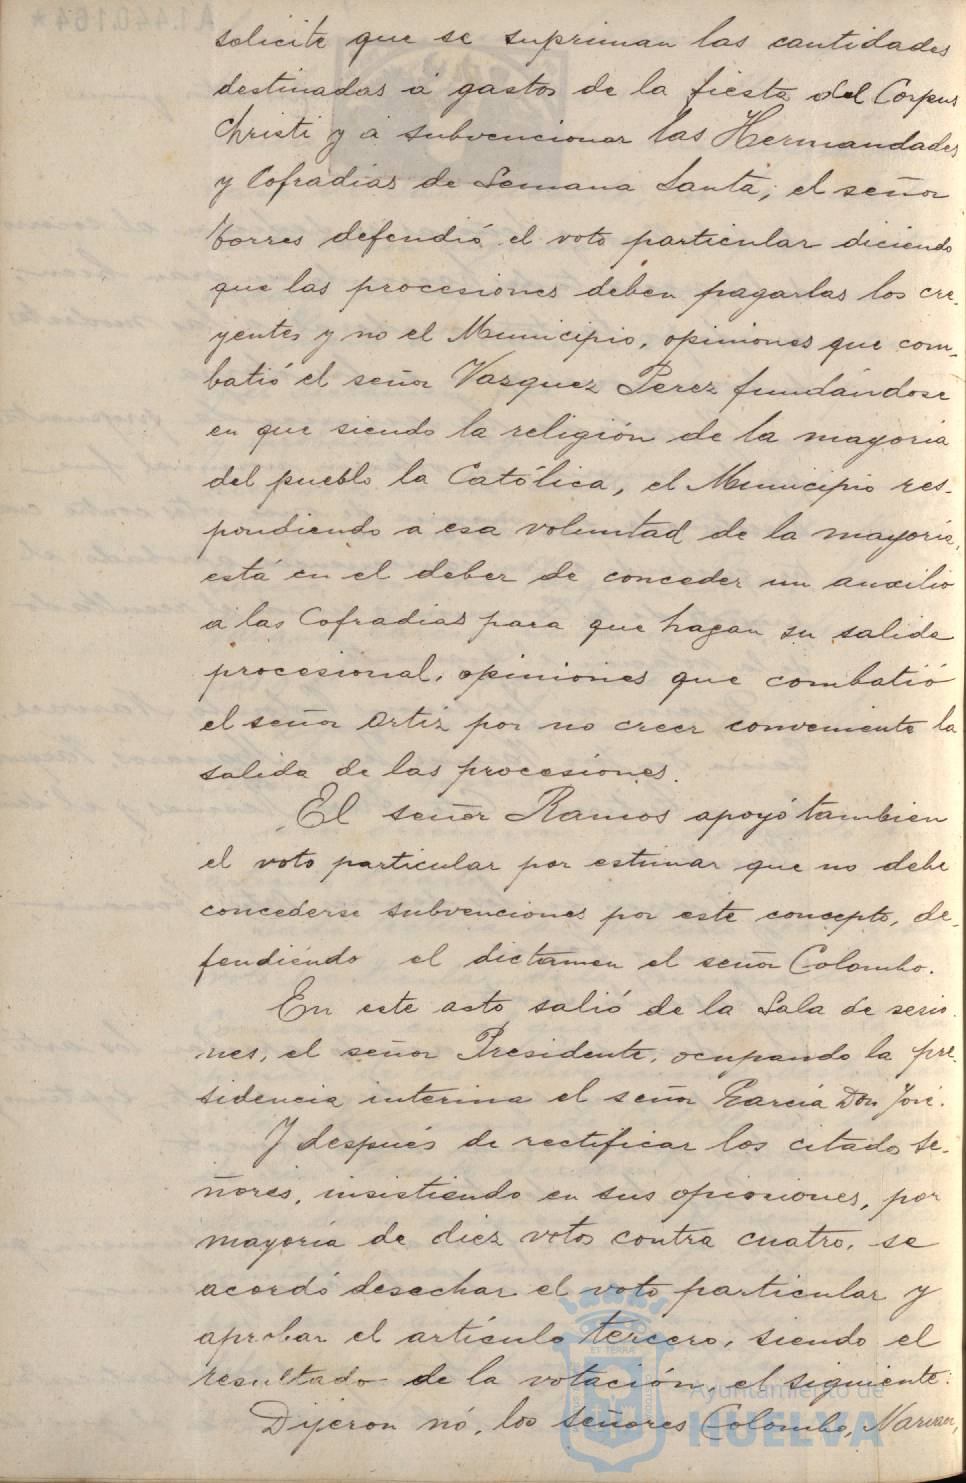 solicite que se supriman las cantidades
destinadas á gastos de la fiesta del Corpus
Christi y á subvencionar las Hermandades
y Cofradias de Semana Santa; el señor
Torres defendió el voto particular diciendo
que las procesiones deben pagarlas los cre-
yentes y no el Municipio, opiniones que com-
batió el señor Vazquez Perez fundándose
en que siendo la religión de la mayoria
del pueblo la Católica, el Municipio res-
pondiendo a esa voluntad de la mayoria,
está en el deber de conceder un auxilio
a las Cofradias para que hagan su salida
procesional, opiniones que combatió
el señor Ortiz por no creer conveniente la
salida de las procesiones.
El señor Ramos apoyó tambien
el voto particular por estimar que no debe
concederse subvenciones por este concepto, de-
fendiendo el dictamen el señor Colombo.
En este acto salió de la Sala de sesio-
nes, el señor Presidente, ocupando la pre-
sidencia interina el señor Garcia Don José.
Y después de rectificar los citados se-
ñores, insistiendo en sus opiniones, por
mayoria de diez votos contra cuatro, se
acordó desechar el voto particular y
aprobar el artículo tercero, siendo el
resultado de la votación, el siguiente:
Dijeron nó, los señores Colombo, Narvaez,
ET TERRÆ
Ayuntamiento de
HUELVA